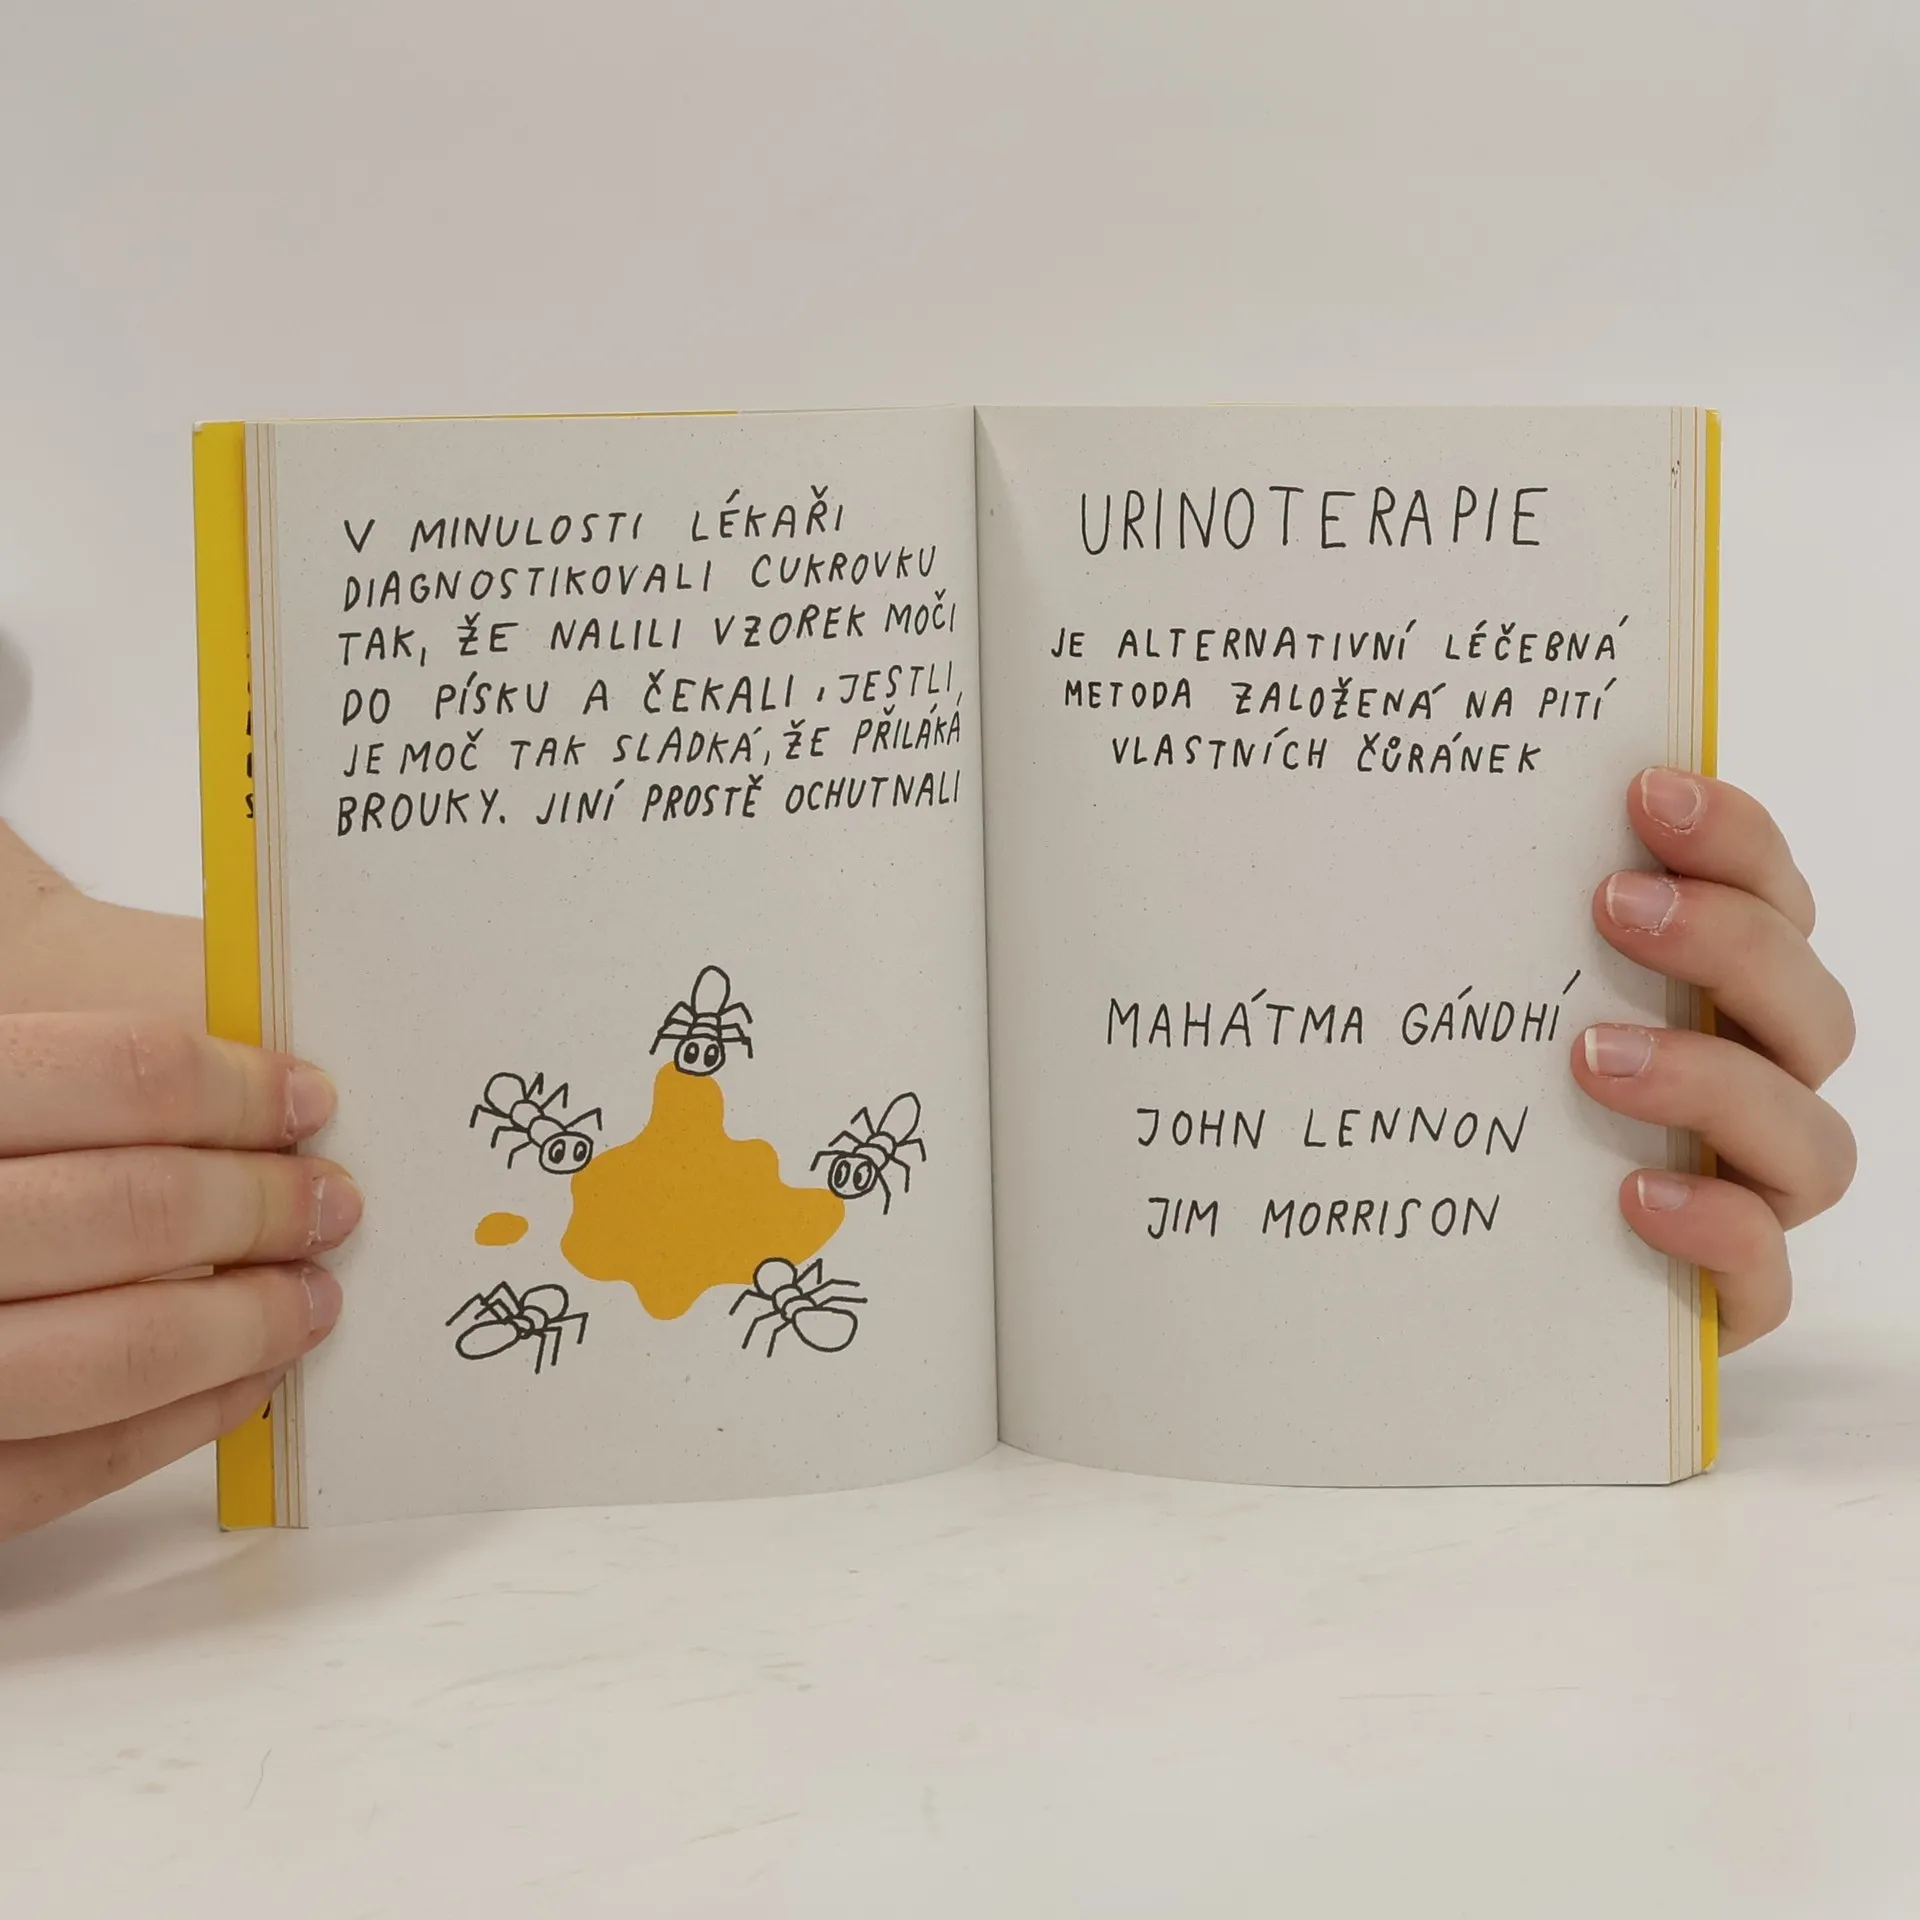 V MINULOSTI LÉKAŘI
DIAGNOSTIKOVALI CUKROVKU
TAK, ŽE NALILI VZOREK MOČI
DO PÍSKU A ČEKALI, JESTLI,
JE MOČ TAK SLADKÁ, ŽE PŘILÁKÁ
BROUKY. JINÍ PROSTĚ OCHUTNALI
URINOTERAPIE
JE ALTERNATIVNÍ LÉČEBNÁ
METODA ZALOŽENÁ NA PITÍ
VLASTNÍCH ČŮRÁNEK
MAHÁTMA GÁNDHÍ
JOHN LENNON
JIM MORRISON